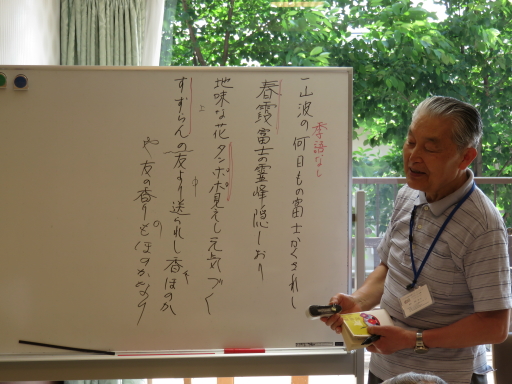 季語なし
一山波の何日もの富士かくされし
春霞富士の霊峰隠しおり
地味な花タンポポ見えし元気づく
上
すずらんの友より送られし香ほのか
中
や友の香りもほのかなり
の